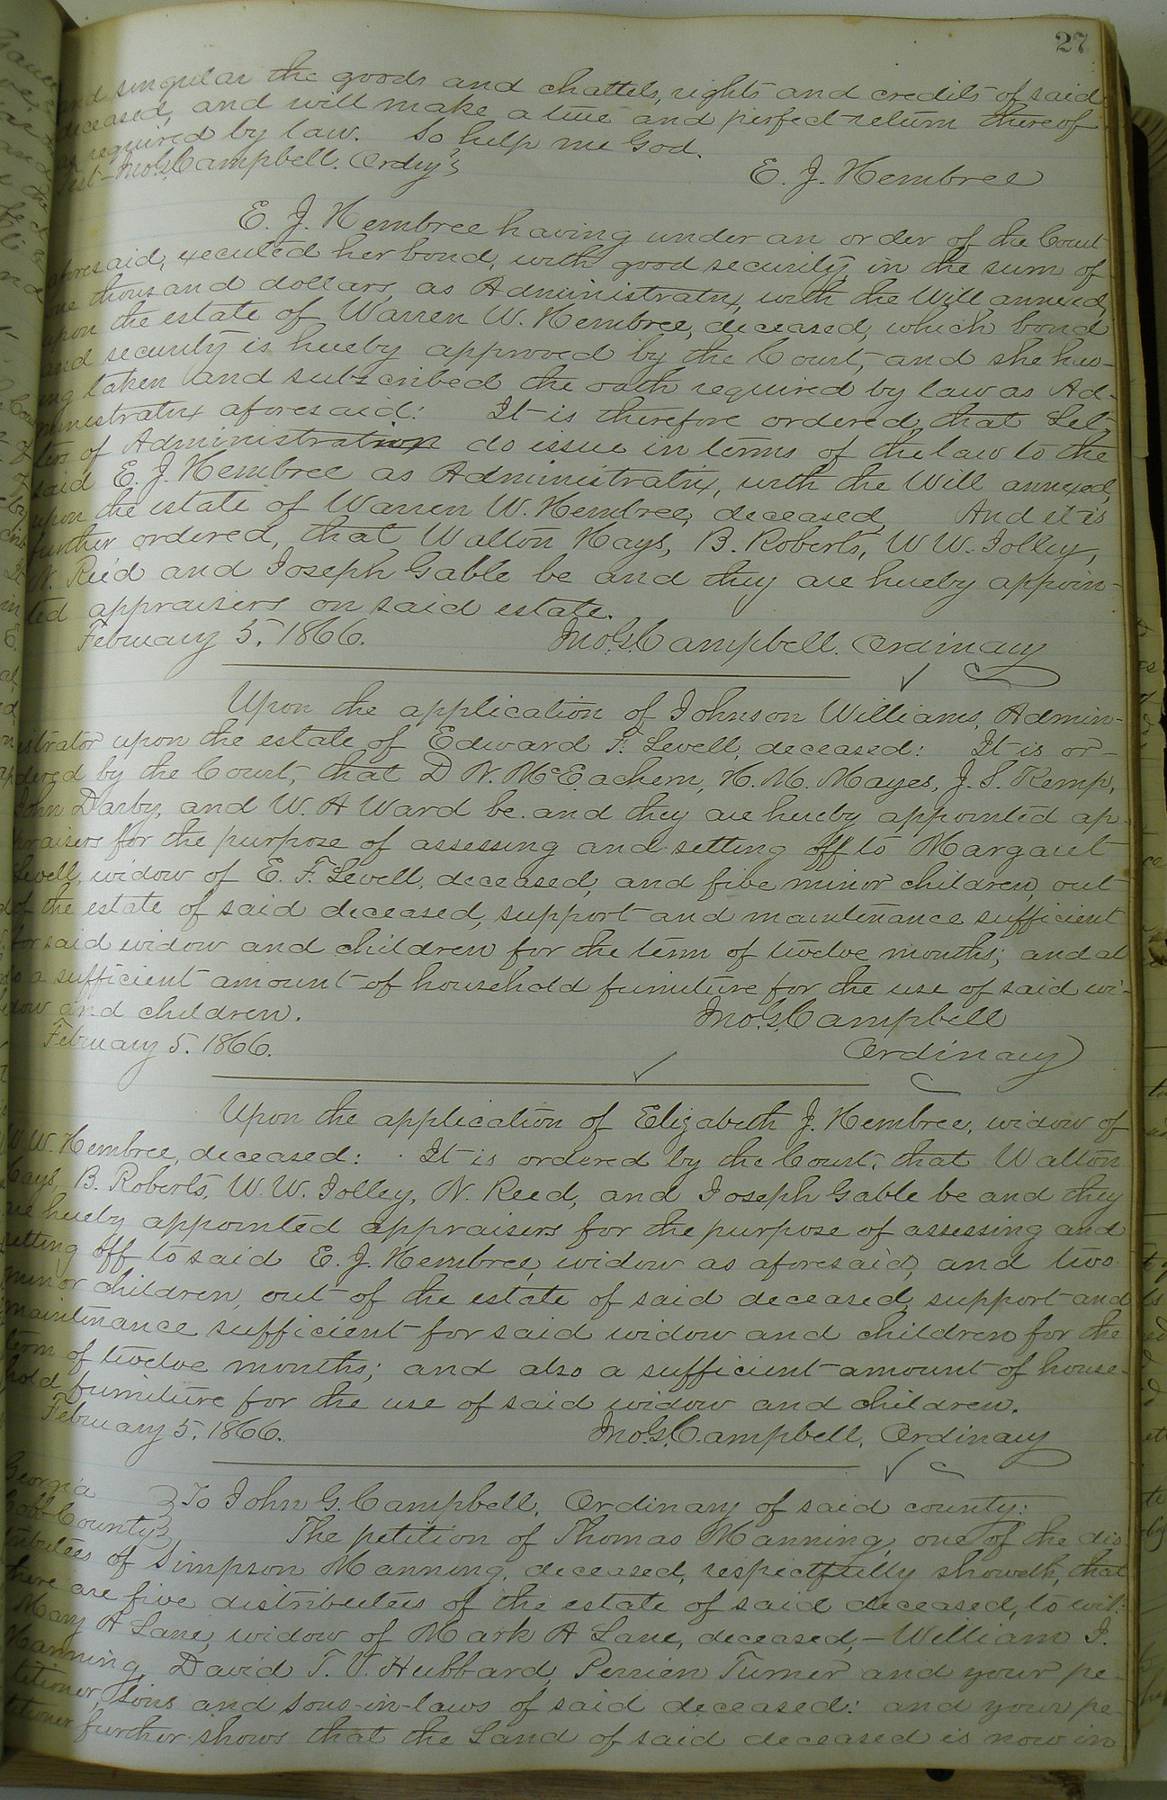 27
and singular the goods and chattels, rights and credits of said
deceased, and will make a true and perfect return thereof
as required by law. So help me God.
Test- Jno. G. Campbell. Ordny. E. J. Hembree
E. J. Hembree having under an order of the Court
aforesaid, executed her bond, with good security, in the sum of
one thousand dollars, as Administratrix, with the Will annexed,
upon the estate of Warren W. Hembree, deceased, which bond
and security is hereby approved by the Court, and she hav-
ing taken and subscribed the oath required by law as Ad-
ministratrix aforesaid: It is therefore ordered, that Let-
ters of Administration do issue in terms of the law to the
said E. J. Hembree as Administratrix, with the Will annexed,
upon the estate of Warren W. Hembree, deceased, And it is
further ordered, that Walton Hays, B. Roberts, W W. Jolley,
N. Reed and Joseph Gable be and they are hereby appoin-
ted appraisers on said estate.
February 5. 1866. Jno. G. Campbell. Ordinary
Upon the application of Johnson Williams, Admin-
istrator upon the estate of Edward F. Levell, deceased: It is or-
dered by the Court, that D N. McEachern, H. M. Mayes, J. S. Kemp,
John Darby, and W. A Ward be and they are hereby appointed ap-
praisers for the purpose of assessing and setting off to Margaret
Levell, widow of E. F. Levell, deceased, and five minor children, out
of the estate of said deceased, support and maintenance sufficient
for said widow and children for the term of twelve months; and al
so a sufficient amount of household furniture for the use of said wi-
dow and children. Jno. G. Campbell
February 5. 1866. Ordinary
Upon the application of Elizabeth J. Hembree, widow of
W. W. Hembree, deceased: It is ordered by the Court, that Walton
Hays, B. Roberts, W. W. Jolley, N. Reed, and Joseph Gable be and they
are hereby appointed appraisers for the purpose of assessing and
setting off to said E. J. Hembree, widow as aforesaid, and two
minor children, out of the estate of said deceased, support and
maintenance sufficient for said widow and children for the
term of twelve months; and also a sufficient amount of house-
hold furniture for the use of said widow and children.
February 5. 1866. Jno. G. Campbell, Ordinary
Georgia
Cobb County To John G. Campbell, Ordinary of said county:
The petition of Thomas Manning, one of the dis
tributees of Simpson Manning, deceased, respectfully showeth, that
there are five distributees of the estate of said deceased, to wit:
Mary A Lane, widow of Mark A Lane, deceased, - William J.
Manning, David T. V. Hubbard, Perrien Turner and your pe-
titioner, sons and sons-in-laws of said deceased: and your pe-
titioner further shows that the Land of said deceased is now in